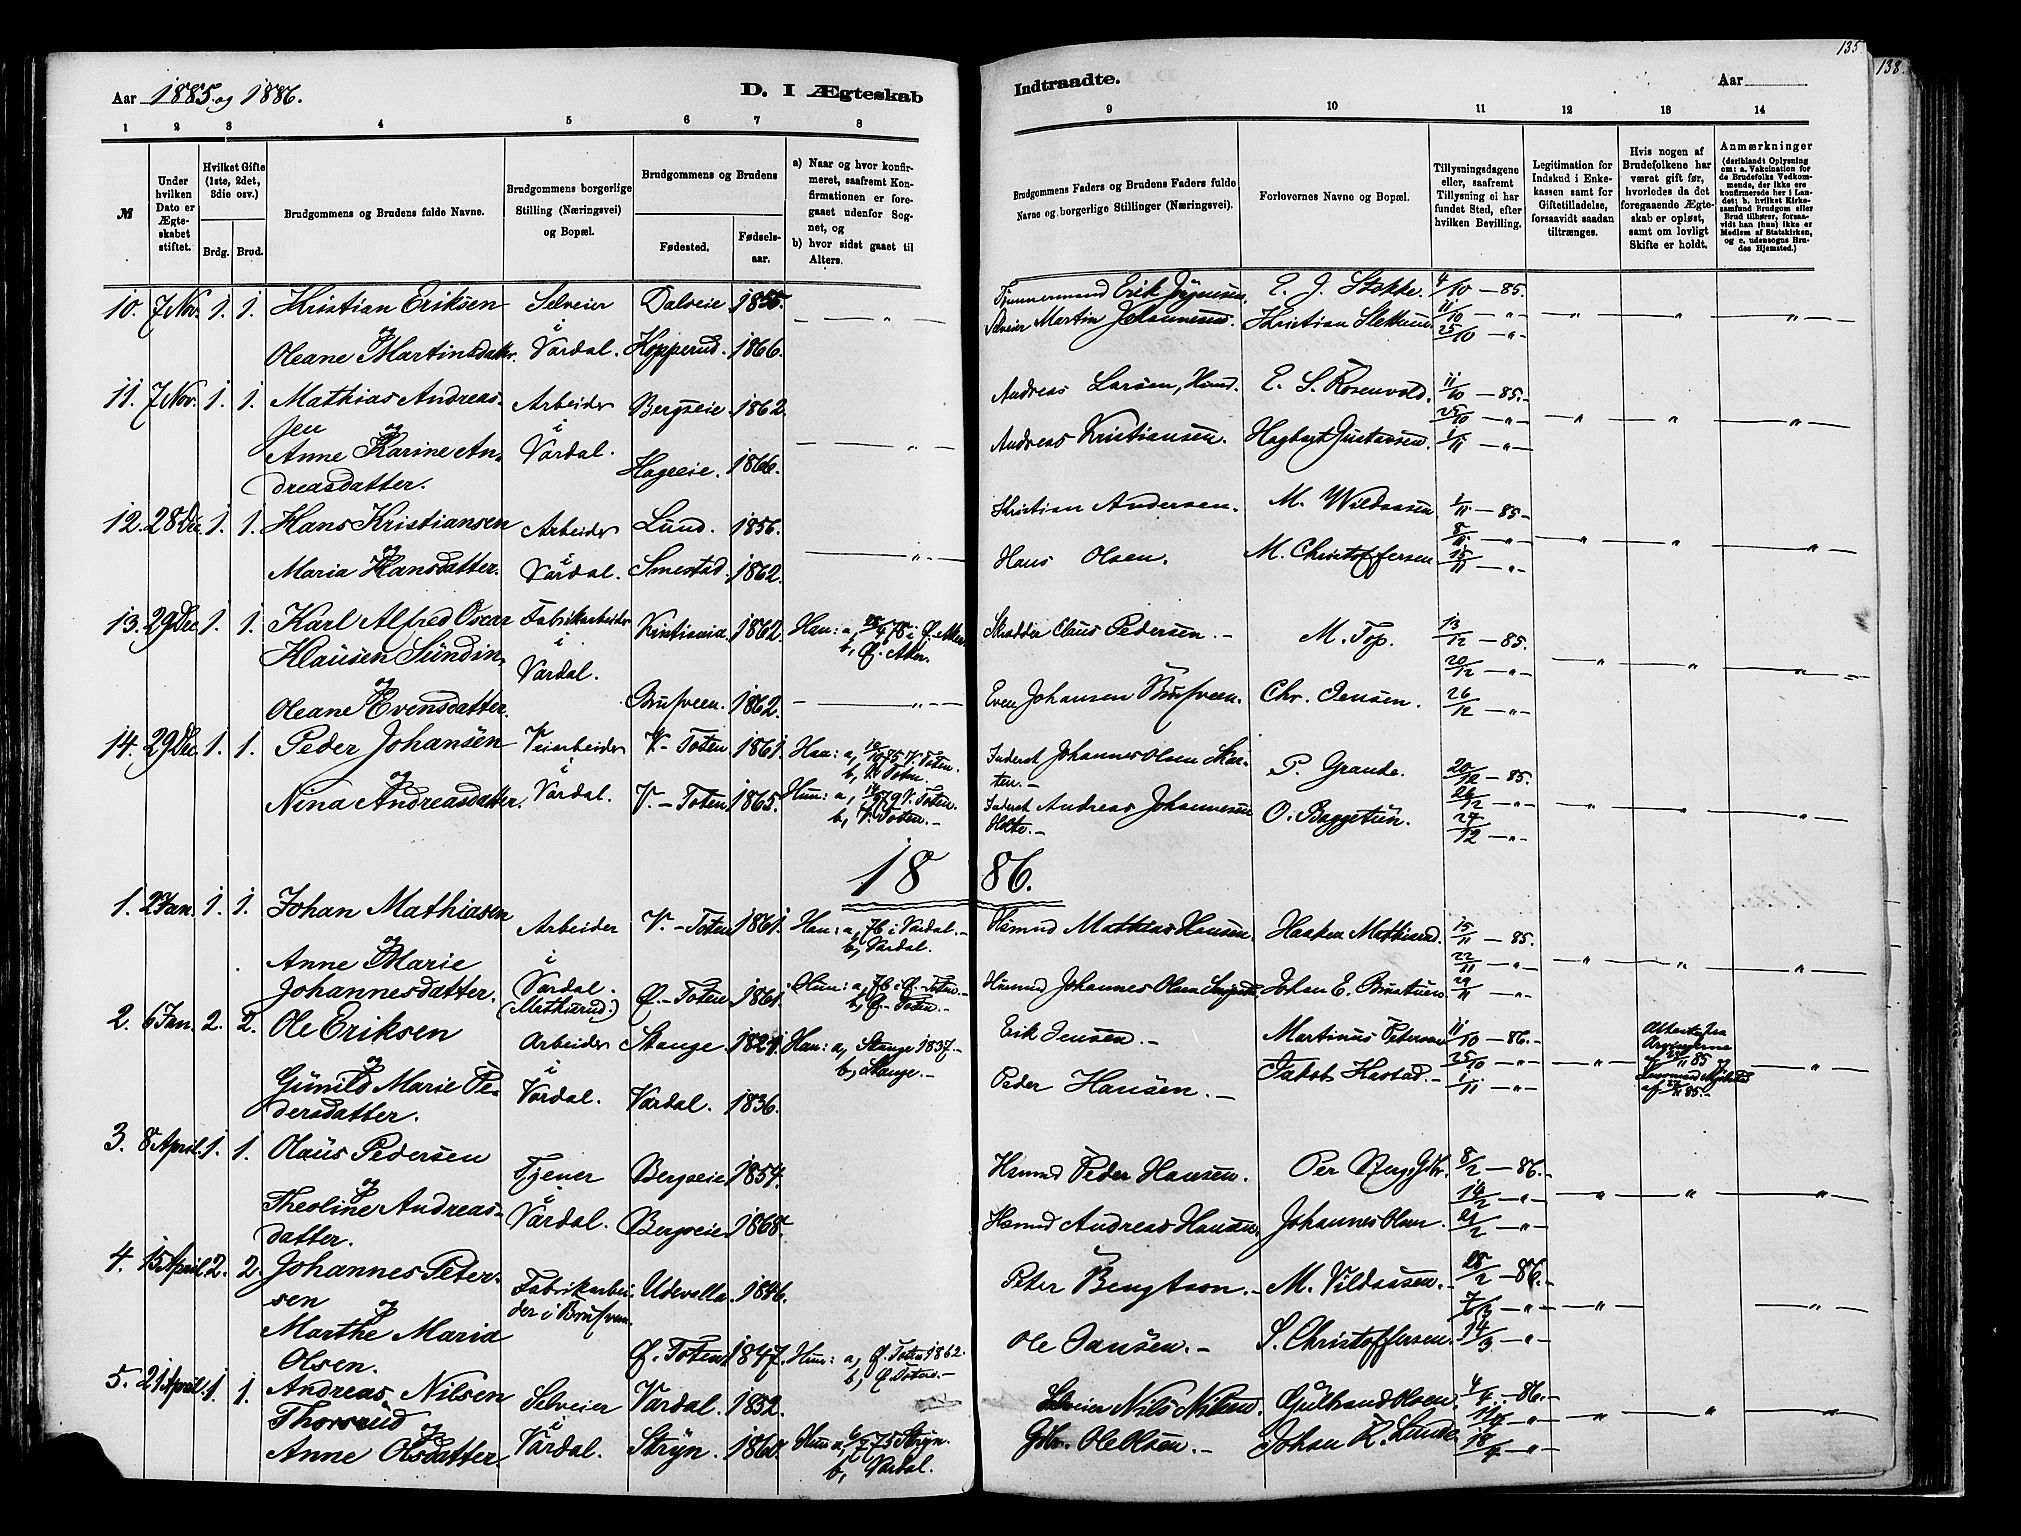 135
138.
Aar 1885 og 1886.
D. I Ægteskab
Indtraadte.
Aar
1 2 3 4 5 6 7 8 9 10 11 12 13 14
№
Under hvilken Dato er Ægteskabet stiftet.
Hvilket Gifte (1ste, 2det, 3die osv.)
Brdg. Brud.
Brudgommens og Brudens fulde Navne.
Brudgommens borgerlige Stilling (Næringsvei) og Bopæl.
Brudgommens og Brudens
Fødested. Fødselsaar.
a) Naar og hvor konfirmeret, saafremt Konfirmationen er foregaaet udenfor Sognet, og
b) hvor sidst gaaet til Alters.
Brudgommens Faders og Brudens Faders fulde Navne og borgerlige Stillinger (Næringsvei).
Forlovernes Navne og Bopæl.
Tillysningsdagene eller, saafremt Tillysning ei har fundet Sted, efter hvilken Bevilling.
Legitimation for Indskud i Enkekassen samt for Giftetilladelse, forsaavidt saadan tiltrænges.
Hvis nogen af Brudefolkene har været gift før, hvorledes da det foregaaende Ægteskab er opløst, samt om lovligt Skifte er holdt.
Anmærkninger
(deriblandt Oplysning om: a. Vakcination for de Brudefolks Vedkommende, der ikke ere konfirmerede her i Landet; b. hvilket Kirkesamfund Brudgom eller Brud tilhører, forsaavidt han (hun) ikke er Medlem af Statskirken, og c. udensogns Brudes Hjemsted.)
10. 7 Nov. 1. 1. Kristian Eriksen Selveier Dalseie 1855. — „ — Tømmermand Erik E. J. Stokke. 4/10 — 85.
og i Selveier Martin Johannesen. Kristian 11/10 — „ —
Oleane Martinsdatter. Vardal. Hopperud. 1866. 25/10 — „ —
11. 7 Nov. 1. 1. Mathias Andreas- Arbeider Bergseie 1862. Andreas Larsen, Hmd. E. S. Rosenvold. 11/10 — 85.
sen og i 25/10 — „ —
Anne Karine An- Vardal. Hageeie. 1866. — „ — Andreas Kristiansen. Hagbart Gustavsen. 1/11 — „ —
dreasdatter.
12. 28 Dec. 1. 1. Hans Kristiansen Arbeider Lund. 1856. Kristian Andersen. M. Wildaasen 1/11 — 85.
og i 8/11 — „ —
Maria Hansdatter. Vardal. Smestad. 1862. — „ — Hans Olsen. M. Christoffersen 15/11 — „ —
13. 29 Dec. 1. 1. Karl Alfred Oscar Fabrikarbeider Kristiania 1862. Han: a, Skrædder Claus Pedersen. M. Top. 13/12 — 85.
Klausen Sundin. i b, Ø. Aker. 20/12 — „ —
og Vardal.
Oleane Evensdatter. Brufveen. 1862. — „ — Even Johansen Brufveen. Chr. Jensen. 26/12 — „ —
14. 29 Dec. 1. 1. Peder Johansen Veiarbeider V. Toten 1861. Han: a, 75 V. Toten. Inderst Johannes Olsen P. Grande. 20/12 — 85.
og i b, V. Toten. 26/12 — „ —
Nina Andreasdatter. Vardal. V. Toten 1865. Hun: a, 79 V. Toten. Inderst Andreas Johannesen O. Baggetun. 27/12 — „ —
b, V. Toten.
1886.
1. 2 Jan. 1. 1. Johan Mathiasen Arbeider V. Toten 1861. Han: a, 76 i Vardal. Husmd Mathias Hansen. Haaken Mathisrud. 15/11 — 85.
og i b, Vardal. 22/11 — „ —
Anne Marie Vardal. Ø. Toten. 1861. Hun: a, 76 i Ø. Toten. Husmd Johannes Olsen Johan E. Brustuen. 29/11 — „ —
Johannesdatter. (Mathisrud.) b, Ø. Toten.
2. 6 Jan. 2. 2. Ole Eriksen Arbeider Stange. 1821. Han: a, Stange 1837. Erik Jensen. Martinus Petersen 11/10 — 86. Attest fra
og i b, Stange. 25/10 — „ — 85 og
Gunild Marie Pe- Vardal. Vardal. 1836. Peder Hansen. Jakob Hastad. 1/11 — „ — 85.
dersdatter.
3. 8 April. 1. 1. Olaus Pedersen Tjener Bergseie 1854. Husmd Peder Hansen. Per 8/2 — 86.
og i 14/2 — „ —
Theoline Andreas- Vardal. Bergseie 1868. Husmd Andreas Hansen. Johannes Olsen. 21/2 — „ —
datter.
4. 15 April. 2. 2. Johannes Peter- Fabrikarbei- Udevalla 1846. Peter Bengtson. M. Vildaasen. 28/2 — 86.
sen og der i Brufveen. 7/3 — „ —
Marthe Maria Ø. Toten. 1847. Hun: a, Ø. Toten 1862. Ole Jansen. S. Christoffersen. 14/3 — „ —
Olsen. b, Ø. Toten.
5. 21 April. 1. 1. Andreas Nilsen Selveier Vardal. 1832. Selveier Nils Nilsen. Gulbrand Olsen. 4/4 — 86.
Thorsrud og i 11/4 — „ —
Anne Olsdatter. Vardal. Stryn. 1860. Hun a, 6/7 75 Stryn. Gbr. Ole Olsen. Johan K. Lunde 18/4 — „ —
b, Vardal.